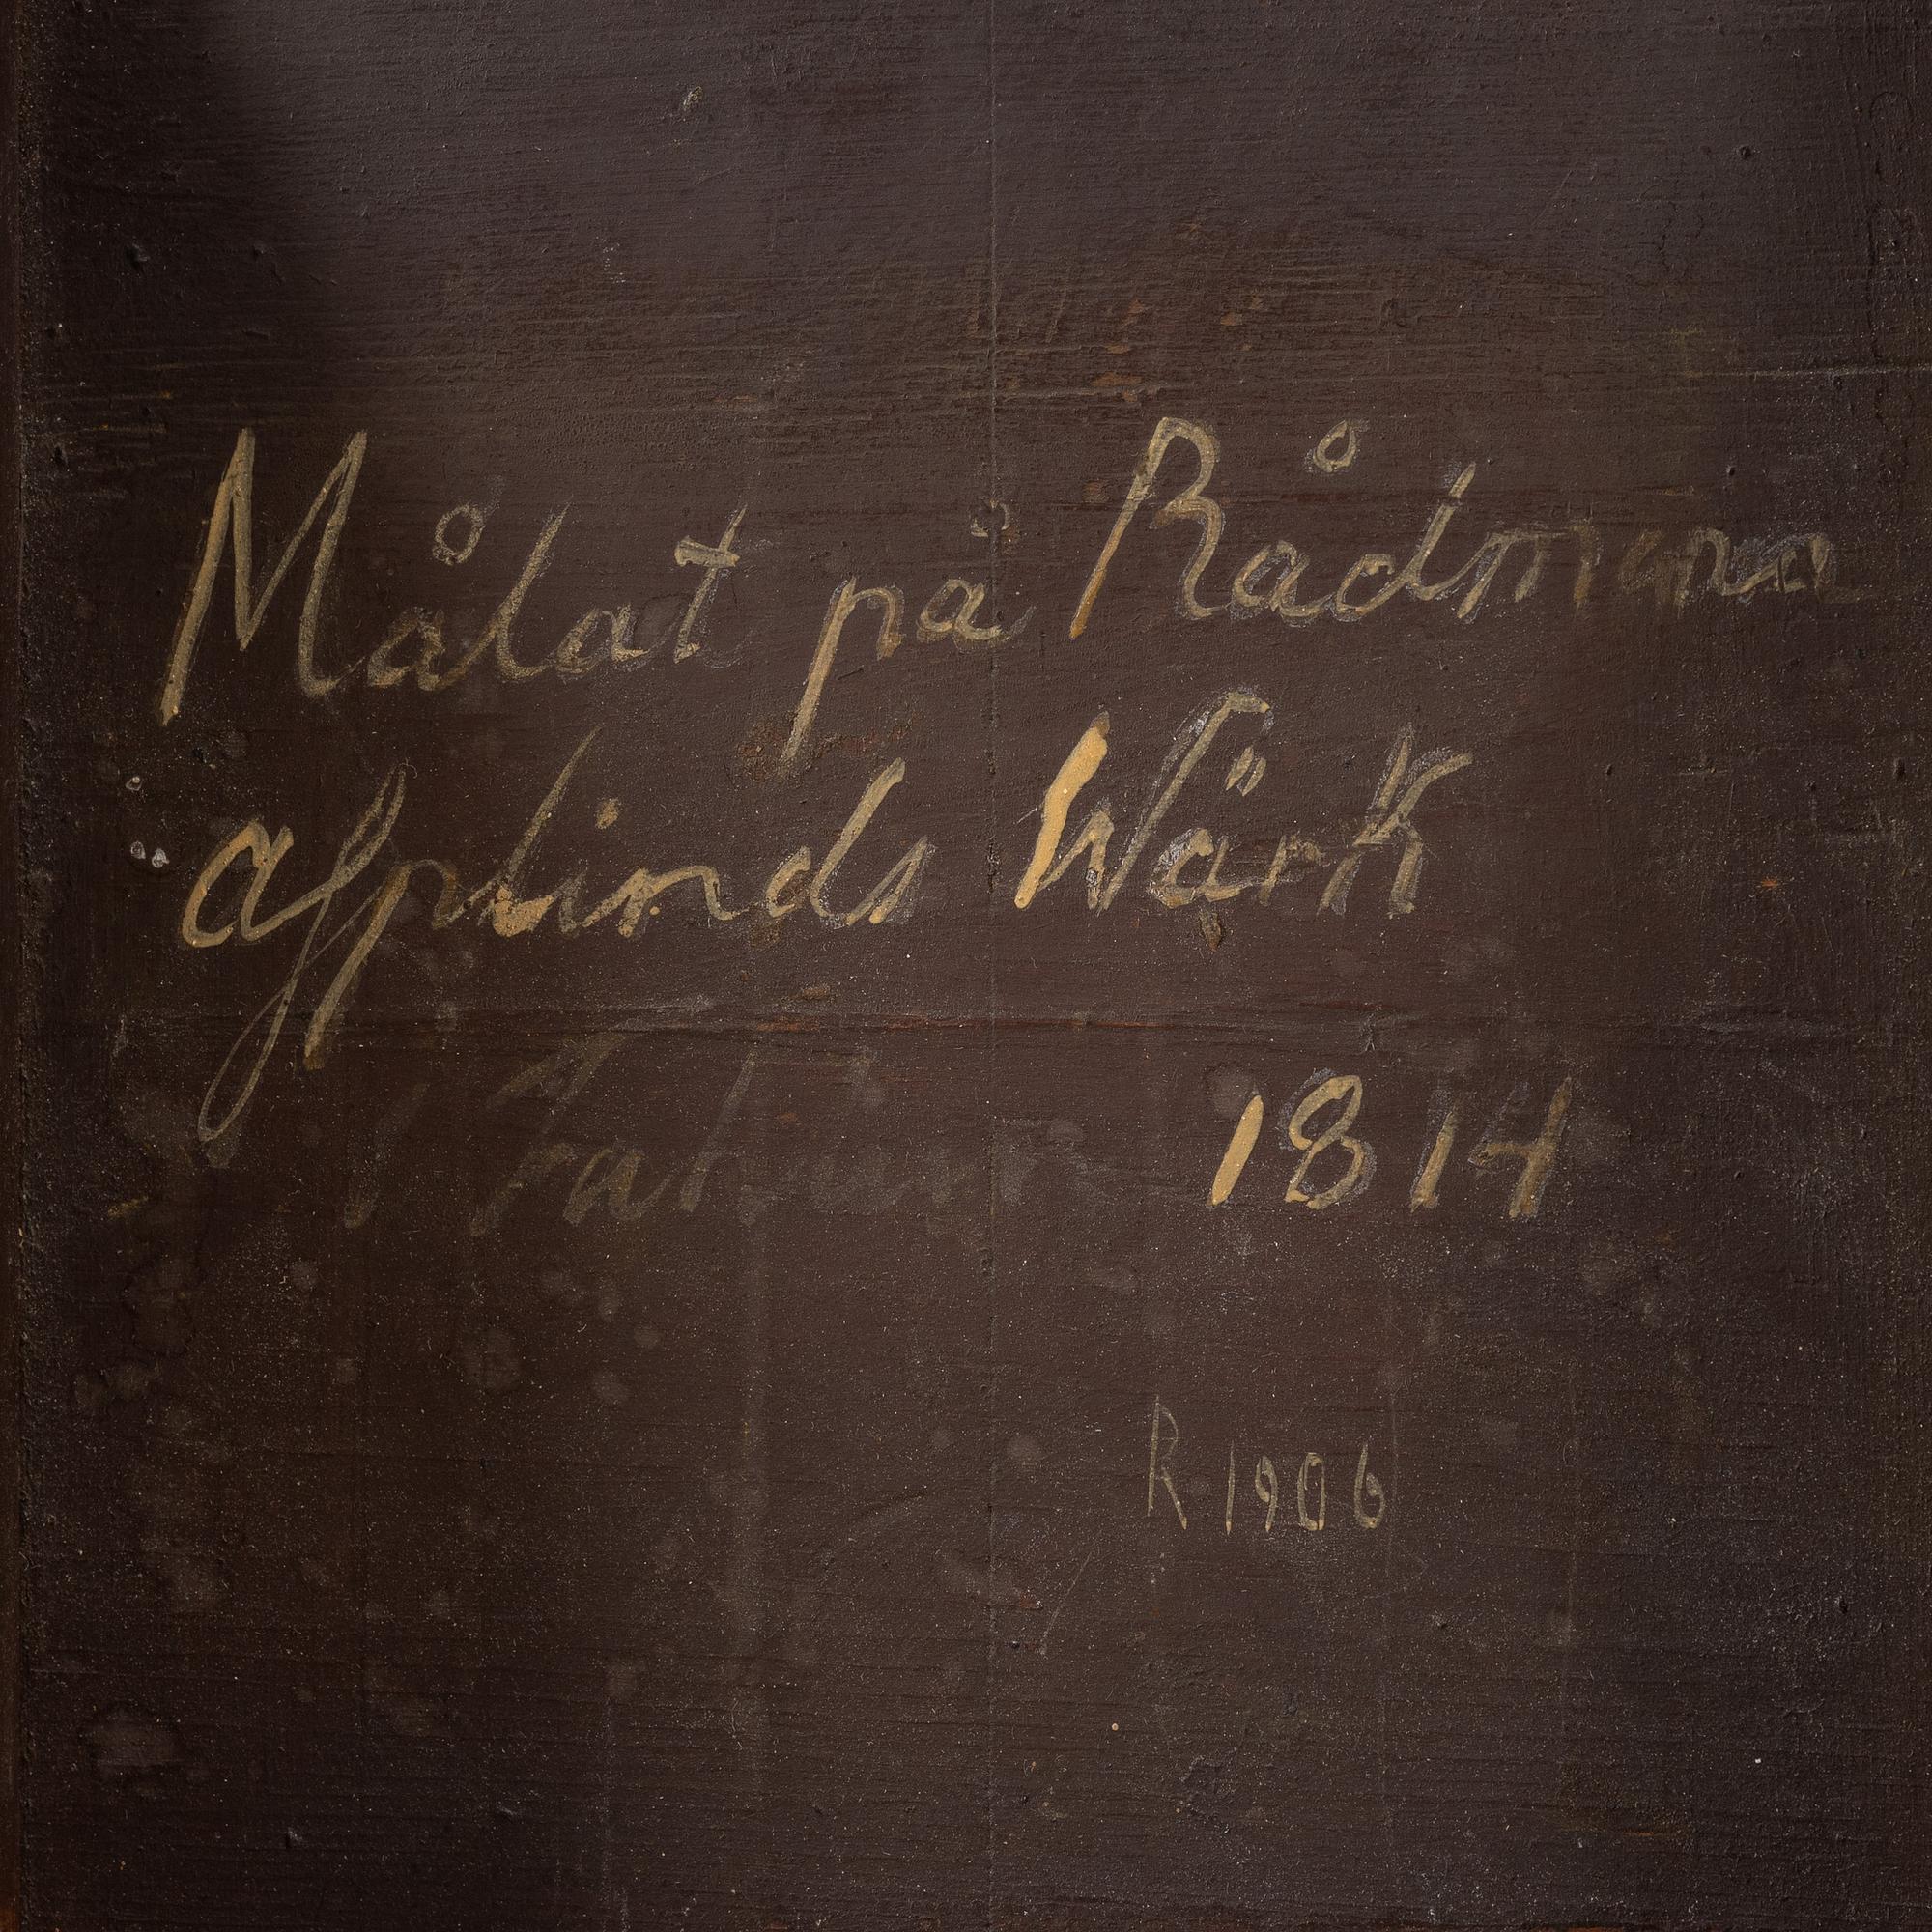 Målat på Rådmann
Afplinds Wärk
1814
R 1906